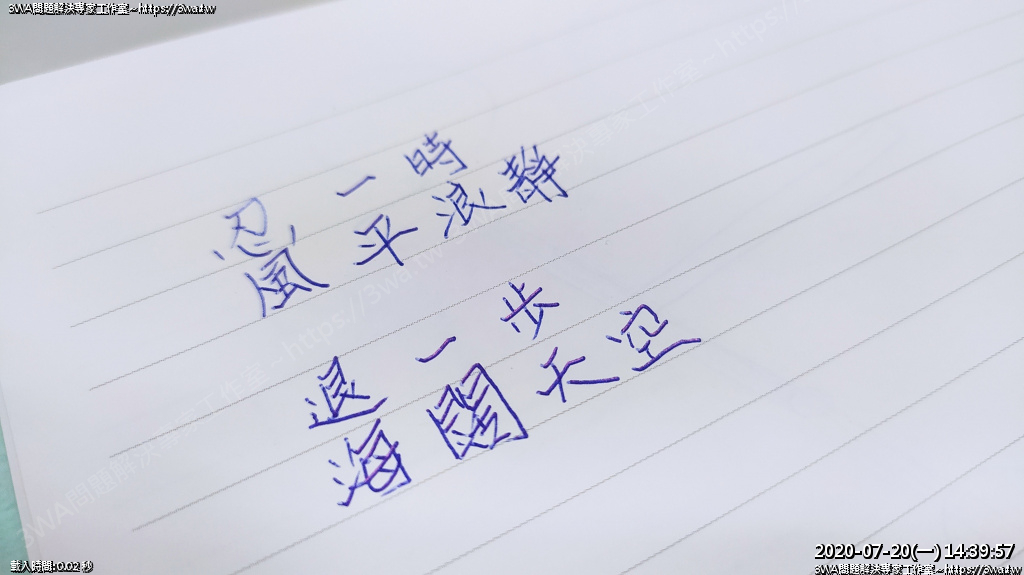 3WA問題解決專家工作室~https://3wa.tw
忍一時
風平浪静
退一步
海闊天空
3WA問題解決專家工作室~https://3wa.tw
載入時間:0.02 秒
2020-07-20(一) 14:39:57
3WA問題解決專家工作室~https://3wa.tw